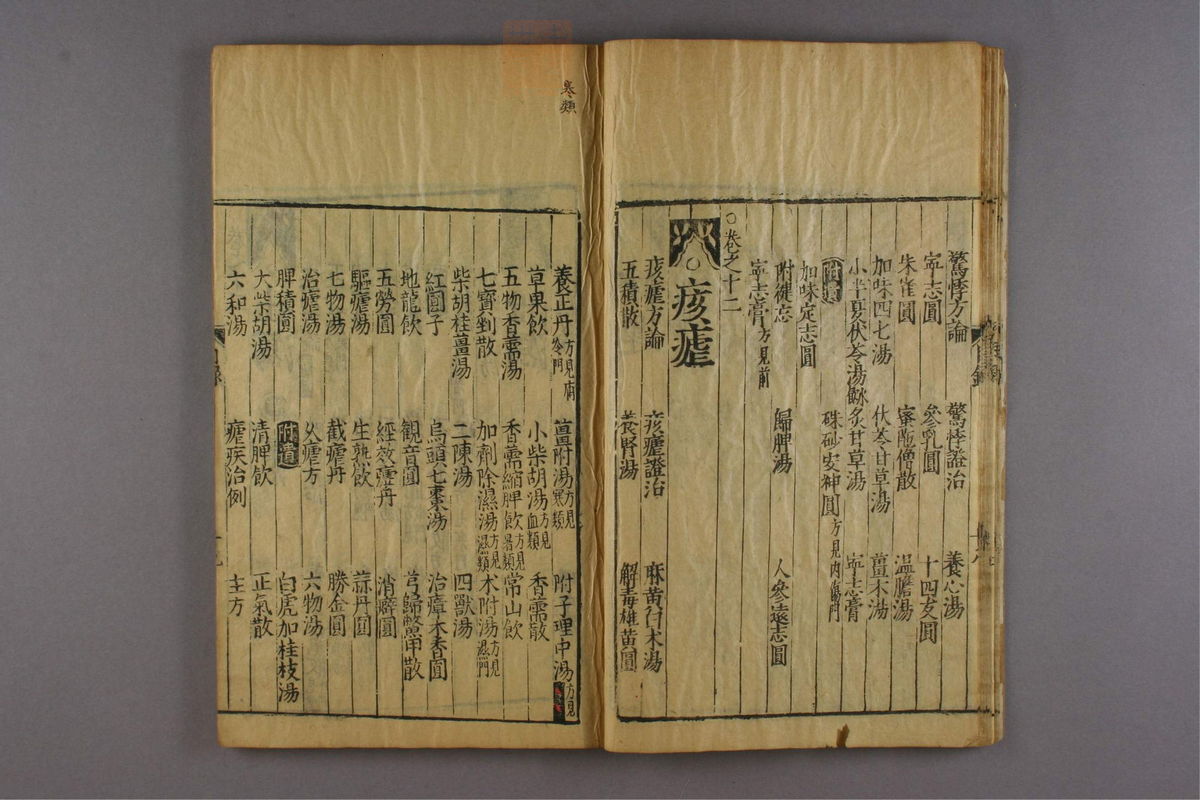 驚悸方論 驚悸證治 養心湯
寧志圓 參乳圓 十四友圓
朱雀圓 蜜陁僧散 温膽湯
加味四七湯 茯苓甘草湯 薑朮湯
小半夏茯苓湯 炙甘草湯 寧志膏
附遺 硃砂安神圓方見内傷門
加味定志圓
附健忘 歸脾湯 人參遠志圓
寧志膏方見前
○卷之十二
○痎瘧
痎瘧方論 痎瘧證治 麻黃白朮湯
五積散 養胃湯 解毒雄黃圓
寒類
養正丹方見痼冷門 薑附湯方見寒類 附子理中湯方見
草果飲 小柴胡湯方見血類 香薷散
五物香薷湯 香薷縮脾飲方見暑類 常山飲
七寶剉散 加劑除濕湯方見濕類 朮附湯方見濕門
柴胡桂薑湯 二陳湯 四獸湯
紅圓子 烏頭七棗湯 治瘴木香圓
地龍飲 觀音圓 芎歸鱉甲散
五勞圓 經效瘧丹 消癖圓
驅瘧湯 生熟飲 蒜丹圓
七物湯 截瘧丹 勝金圓
治瘧湯 久瘧方 六物湯
脾積圓 附遺 白虎加桂枝湯
大柴胡湯 清脾飲 正氣散
六和湯 瘧疾治例 主方